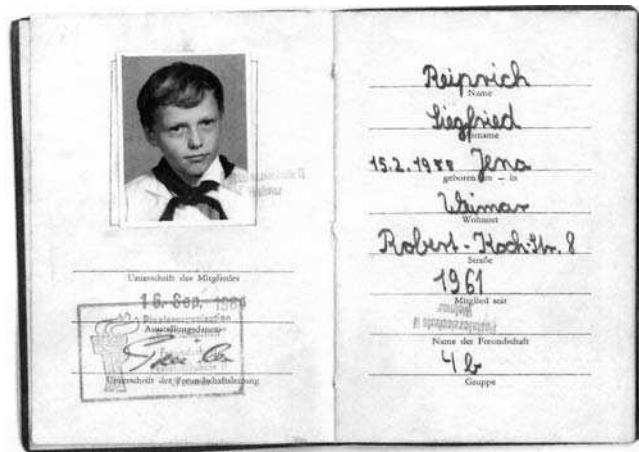 Unterschrift des Mitgliedes
16. Sep.
Pionierorganisation
Ausstellungsdatum
Unterschrift der Freundschaftsleitung
Reiprich
Name
Siegfried
Vorname
15.2.1955 Jena
geboren am – in
Weimar
Wohnort
Robert-Koch-Str. 8
Straße
1961
Mitglied seit
Weimar
Name der Freundschaft
4b
Gruppe